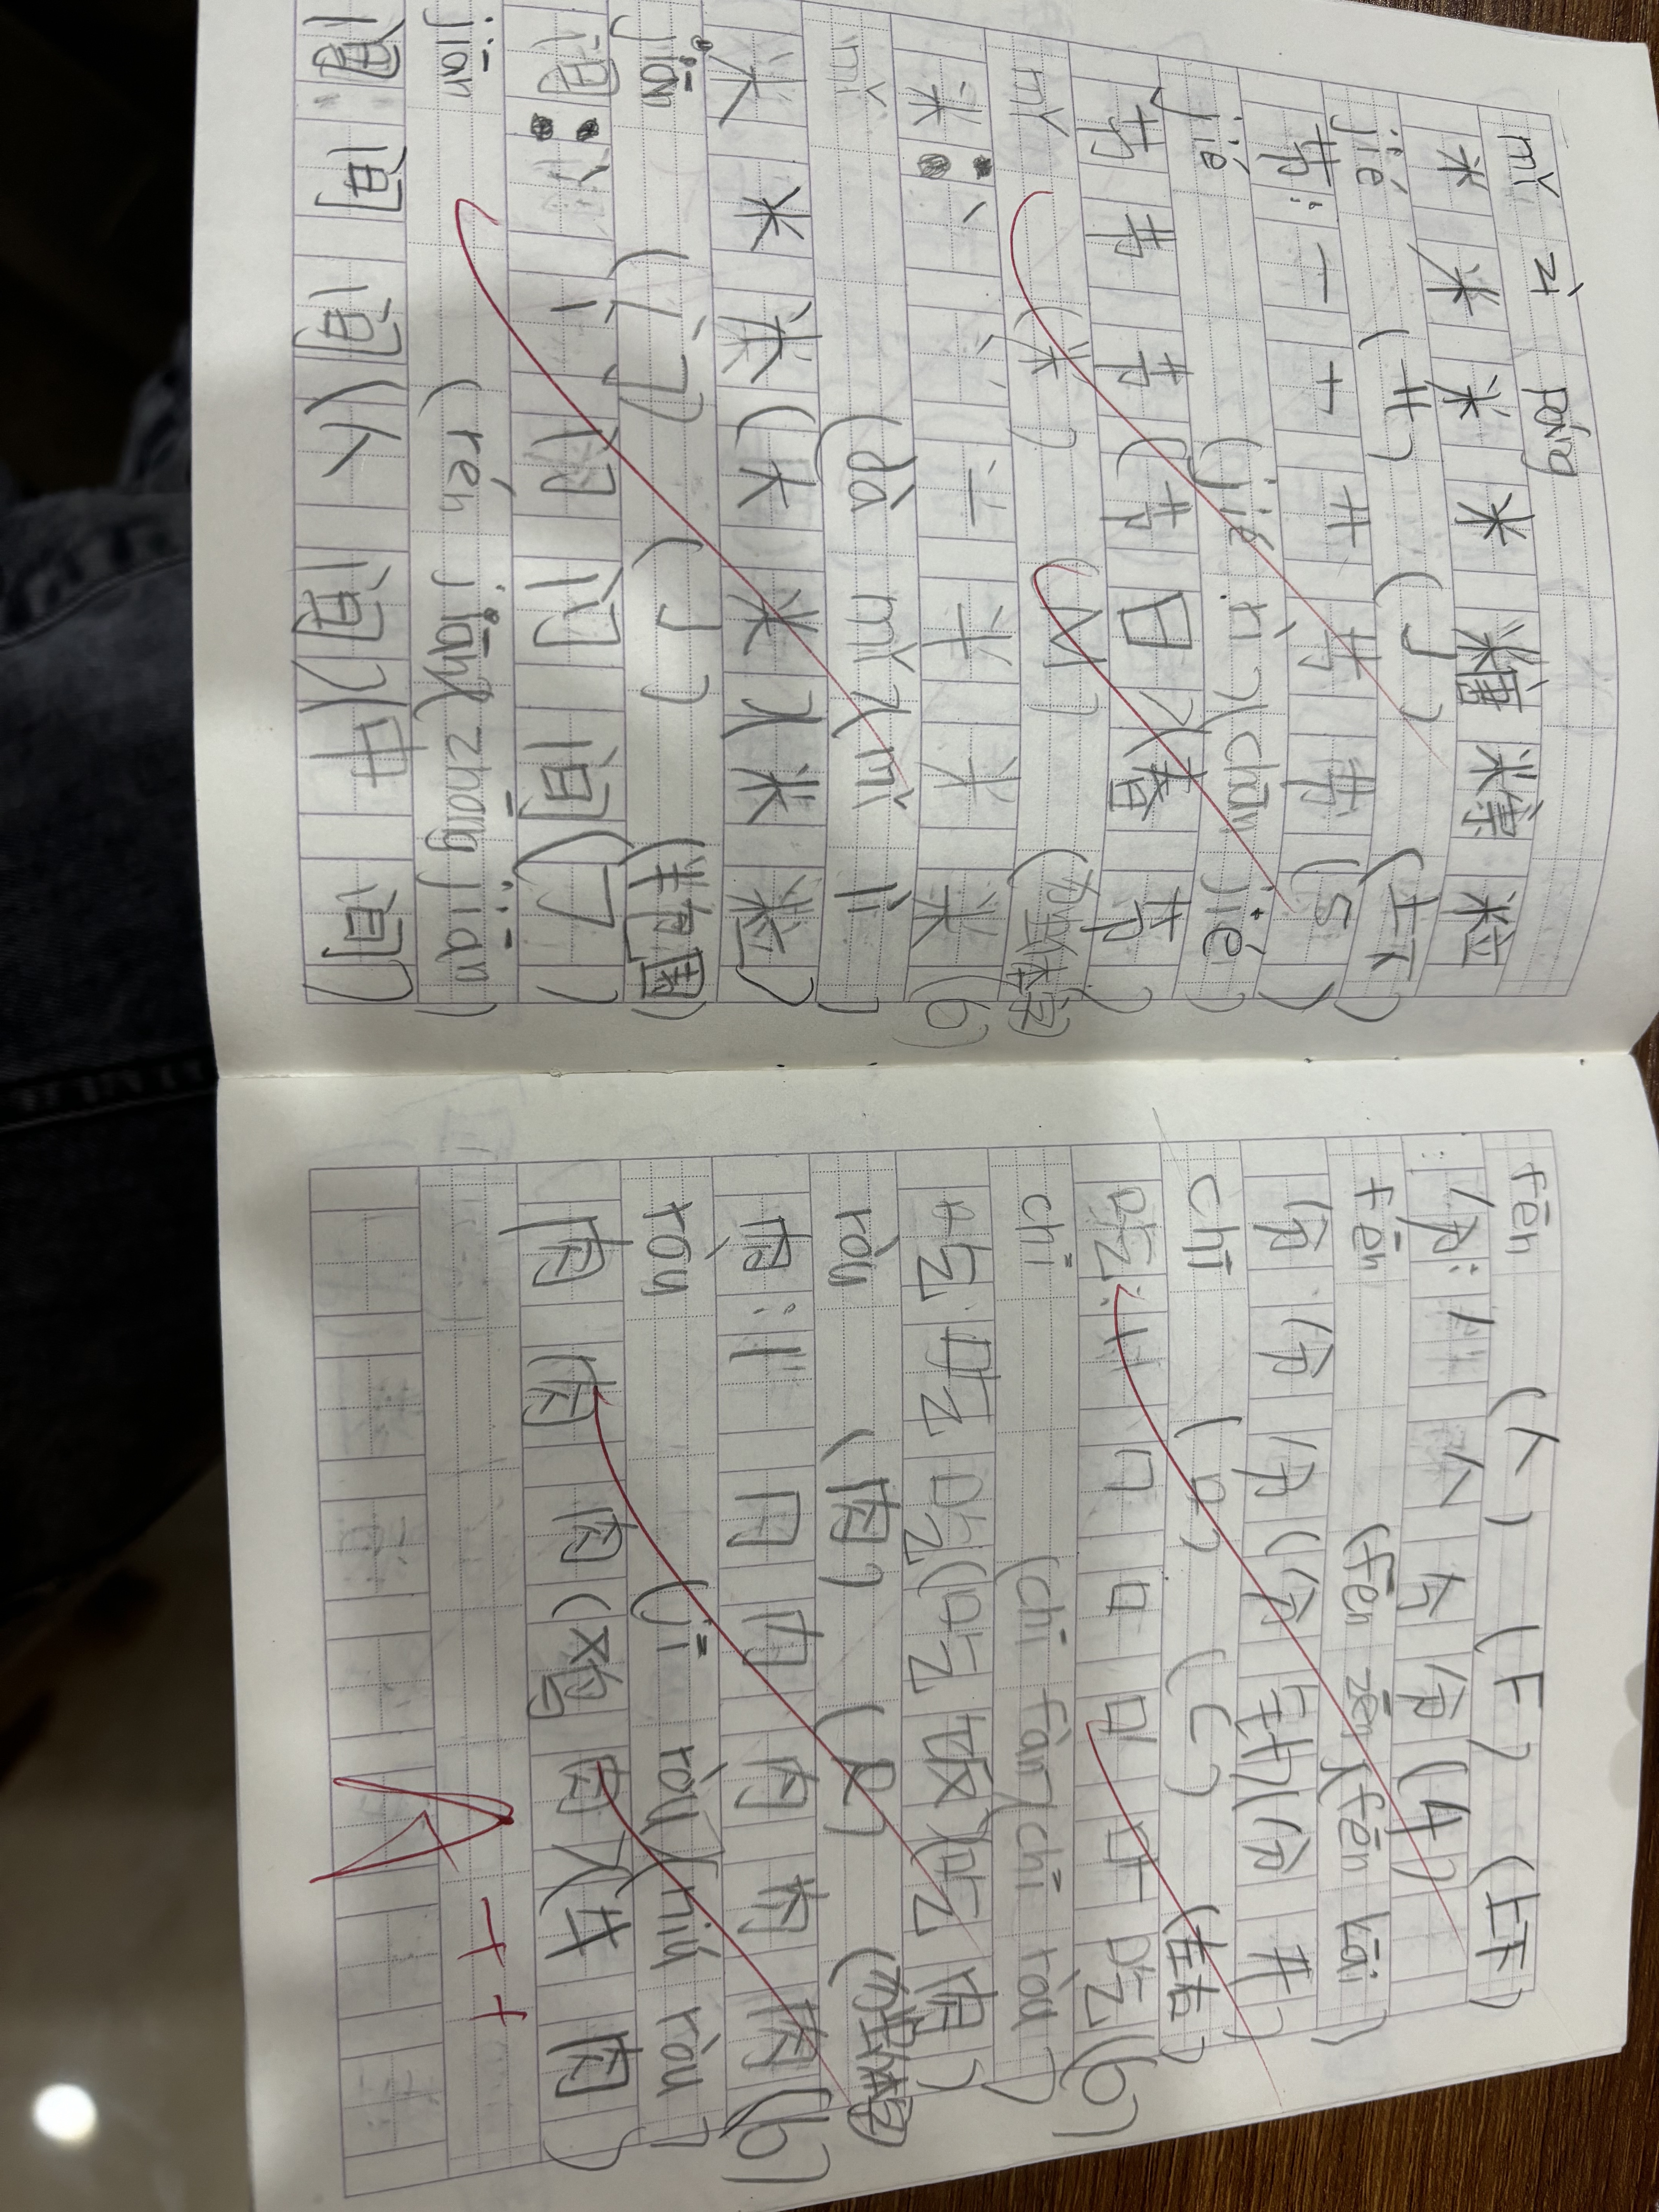 mǐ zì páng
米 米 米 米 糖 粽 粒
jié (艹) (J) (上下)
节: 一 十 艹 节 节 (5)
jié (jié rì)(chūn jié)
节 节 节 (节 日)(春 节)
mǐ (米) (M) (独体字)
米: 丶 丷 䒑 半 米 米 (6)
mǐ (dà mǐ)(mǐ lì)
米 米 米 (大 米)(米 粒)
jiān (门) (J) (半包围)
间: 丶 丨 门 闩 间 (7)
jiān (rén jiān)(zhōng jiān)
间 间 间 (人 间)(中 间)
fēn (八) (F) (上下)
分: 丿 八 分 分 (4)
fēn (fēn zhōng)(fēn kāi)
分 分 分 (分 钟)(分 开)
chī (口) (C) (左右)
吃: 丨 口 口 吃 (6)
chī (chī fàn)(chī ròu)
吃 吃 吃 (吃 饭)(吃 肉)
ròu (肉) (R) (独体字)
肉: 丨 冂 内 肉 肉 (6)
ròu (jī ròu)(niú ròu)
肉 肉 肉 (鸡 肉)(牛 肉)
A++